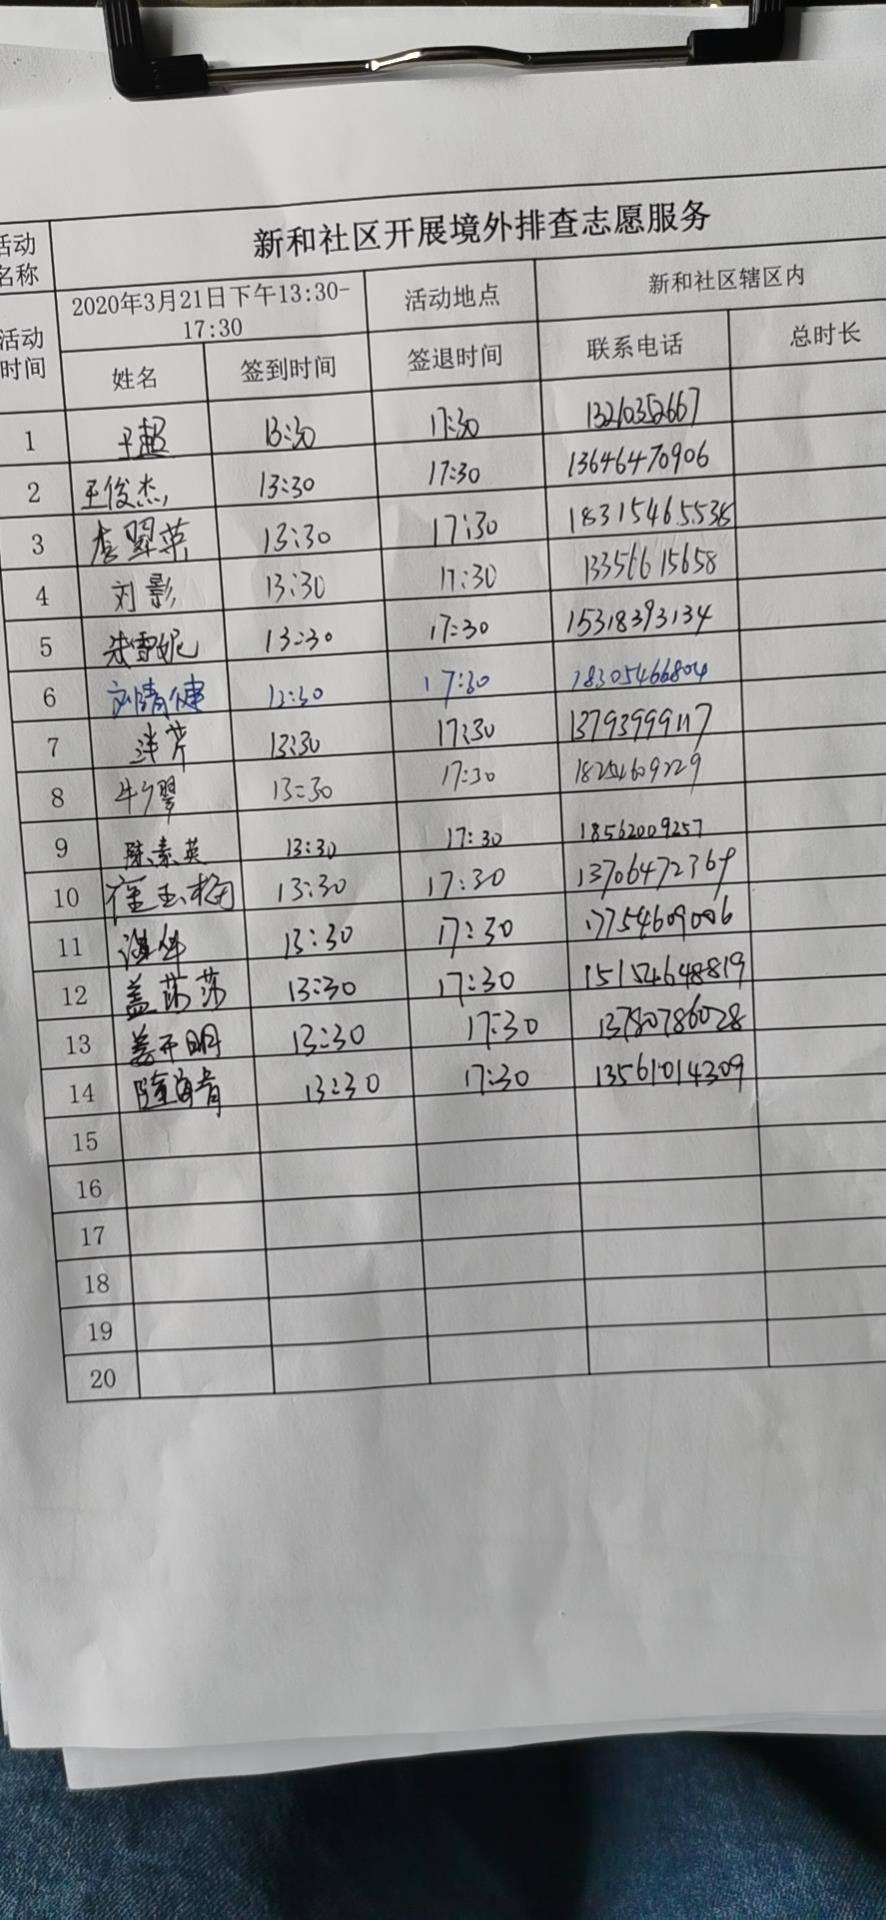 活动名称 新和社区开展境外排查志愿服务
活动时间 2020年3月21日下午13:30-17:30 活动地点 新和社区辖区内
姓名 签到时间 签退时间 联系电话 总时长
1 王超 13:30 17:30 13210352667
2 王俊杰 13:30 17:30 13646470906
3 李翠英 13:30 17:30 18315465538
4 刘影 13:30 17:30 13356615658
5 朱雪妮 13:30 17:30 15318393134
6 刘倩倩 13:30 17:30 18305466804
7 13:30 17:30 13793999117
8 13:30 17:30 18254609229
9 陈素英 13:30 17:30 18562009257
10 崔玉梅 13:30 17:30 13706472369
11 13:30 17:30 17754609006
12 盖莎莎 13:30 17:30 15154648819
13 姜开明 13:30 17:30 13780786028
14 隋海青 13:30 17:30 13561014309
15
16
17
18
19
20